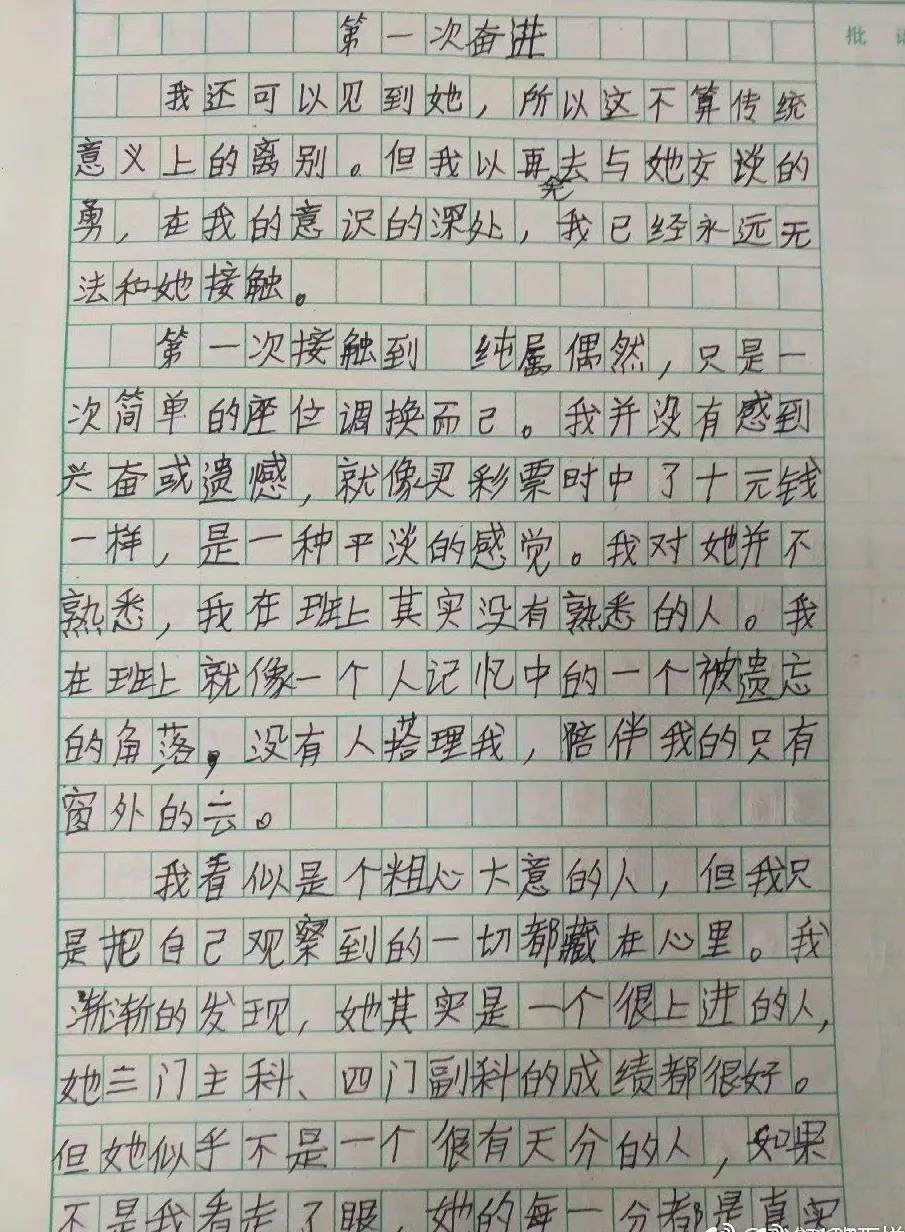 批
第一次奋进
我还可以见到她，所以这不算传统
意义上的离别。但我以再无去与她交谈的
勇，在我的意识的深处，我已经永远无
法和她接触。
第一次接触到 纯属偶然，只是一
次简单的座位调换而已。我并没有感到
兴奋或遗憾，就像买彩票时中了十元钱
一样，是一种平淡的感觉。我对她并不
熟悉，我在班上其实没有熟悉的人。我
在班上就像一个人记忆中的一个被遗忘
的角落，没有人搭理我，陪伴我的只有
窗外的云。
我看似是个粗心大意的人，但我只
是把自己观察到的一切都藏在心里。我
渐渐的发现，她其实是一个很上进的人，
她三门主科、四门副科的成绩都很好。
但她似乎不是一个很有天分的人，如果
不是我看走了眼，她的每一分都是真实